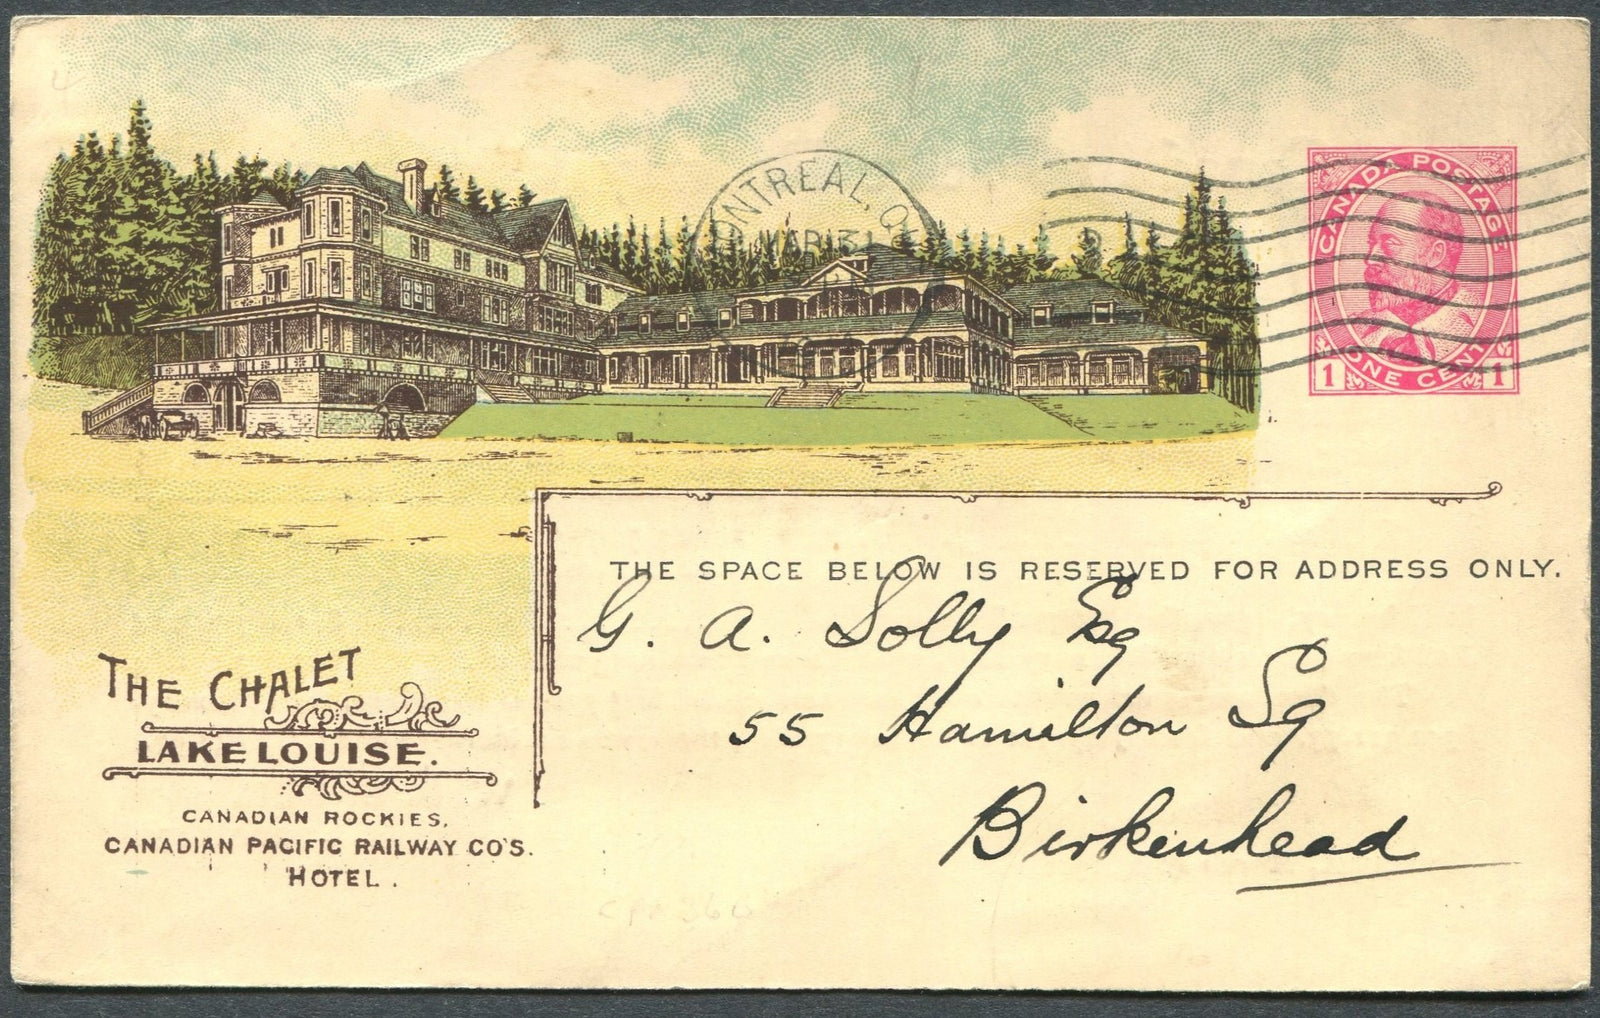 MONTREAL, QUE
MAR 31
CANADA POSTAGE
1 ONE CENT 1
THE SPACE BELOW IS RESERVED FOR ADDRESS ONLY.
G. A. Solly Esq
55 Hamilton Sq
Birkenhead
THE CHALET
LAKE LOUISE.
CANADIAN ROCKIES,
CANADIAN PACIFIC RAILWAY CO'S.
HOTEL.